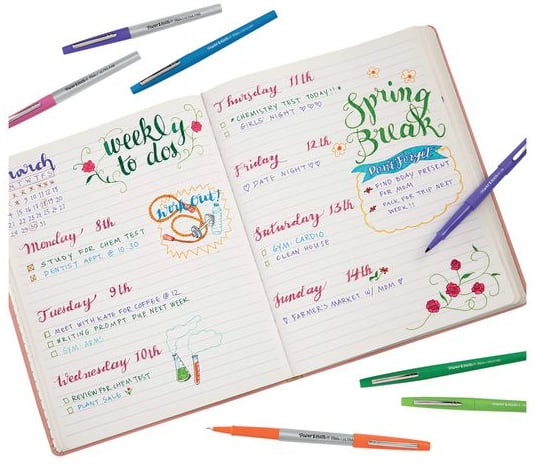 Paper Mate
Paper Mate
Paper Mate
weekly
to dos
March
Monday 8th
STUDY FOR CHEM TEST
DENTIST APPT. @ 10:30
Work Out!
Tuesday 9th
MEET WITH KATE FOR COFFEE @ 12
WRITING PROMPT DUE NEXT WEEK
GYM: ARMS
Wednesday 10th
REVIEW FOR CHEM TEST
PLANT SALE
Thursday 11th
*CHEMISTRY TEST TODAY!!*
GIRLS' NIGHT ♡♡♡
Spring
Break
Friday 12th
♡ DATE NIGHT ♡♡
Don't Forget
FIND BDAY PRESENT
FOR MOM
PACK FOR TRIP NEXT
WEEK!!
Saturday 13th
GYM: CARDIO
CLEAN HOUSE
Sunday 14th
♡ FARMER'S MARKET W/ MOM ♡
Paper Mate
Paper Mate
Paper Mate
Paper Mate